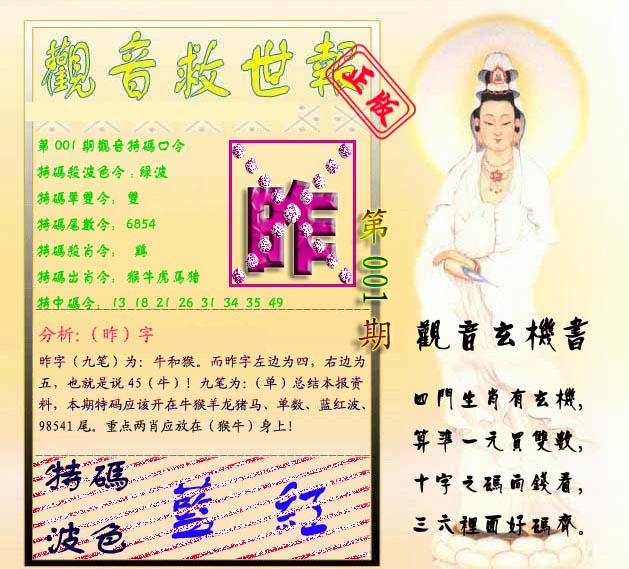 觀音救世報
正版
第001期觀音特碼口令
特碼殺波色令：綠波
特碼單雙令： 雙
特碼尾數令： 6854
特碼殺肖令： 鷄
特碼出肖令： 猴牛虎馬猪
特中碼令： 13 18 21 26 31 34 35 49
昨
第001期
分析:（昨）字
昨字（九笔）为：牛和猴。而昨字左边为四，右边为
五，也就是说45（牛）！九笔为：（单）总结本报资
料，本期特码应该开在牛猴羊龙猪马、单数、蓝红波、
98541尾。重点两肖应放在（猴牛）身上！
特碼
波色
藍 紅
觀音玄機書
四門生肖有玄機，
算準一元買雙數，
十字之碼而錢看，
三六裡面好碼齊。